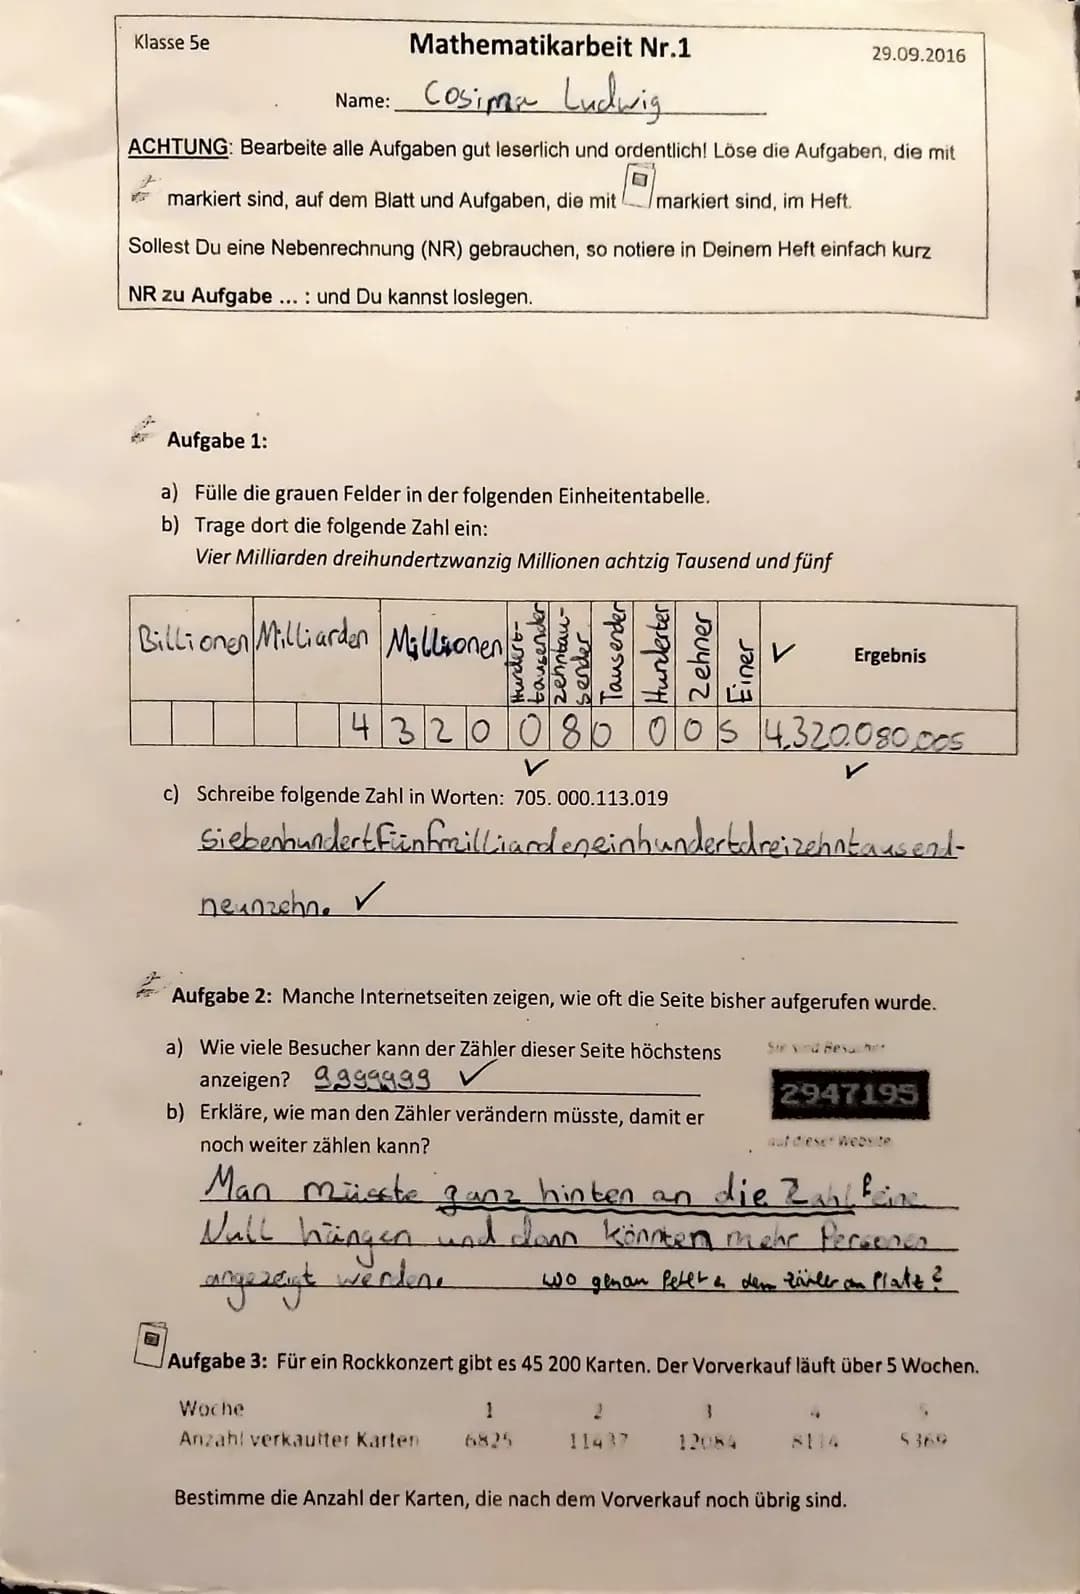 Klasse 5e
Mathematikarbeit Nr.1
29.09.2016
Name: Cosima Ludwig
ACHTUNG: Bearbeite alle Aufgaben gut leserlich und ordentlich! Löse die Aufgaben, die mit
markiert sind, auf dem Blatt und Aufgaben, die mit markiert sind, im Heft.
Sollest Du eine Nebenrechnung (NR) gebrauchen, so notiere in Deinem Heft einfach kurz
NR zu Aufgabe ... : und Du kannst loslegen.
Aufgabe 1:
a) Fülle die grauen Felder in der folgenden Einheitentabelle.
b) Trage dort die folgende Zahl ein:
Vier Milliarden dreihundertzwanzig Millionen achtzig Tausend und fünf
Billionen Milliarden Millionen Hundert-tausender zehntau-sender Tausender Hunderter Zehner Einer ✓ Ergebnis
4 3 2 0 0 8 0 0 0 5 4.320.080.005
✓ ✓
c) Schreibe folgende Zahl in Worten: 705. 000.113.019
siebenhundertfünfmilliardeneinhundertdreizehntausend-
neunzehn. ✓
Aufgabe 2: Manche Internetseiten zeigen, wie oft die Seite bisher aufgerufen wurde.
a) Wie viele Besucher kann der Zähler dieser Seite höchstens
anzeigen? 9999999 ✓
Sie sind Besucher
2947195
auf dieser Website
b) Erkläre, wie man den Zähler verändern müsste, damit er
noch weiter zählen kann?
Man müsste ganz hinten an die Zahl eine
Null hängen und dann könnten mehr Personen
angezeigt werden.
wo genau fehlt dem Zähler an Platz?
Aufgabe 3: Für ein Rockkonzert gibt es 45 200 Karten. Der Vorverkauf läuft über 5 Wochen.
Woche 1 2 3 4 5
Anzahl verkaufter Karten 6825 11437 12084 8114 5369
Bestimme die Anzahl der Karten, die nach dem Vorverkauf noch übrig sind.